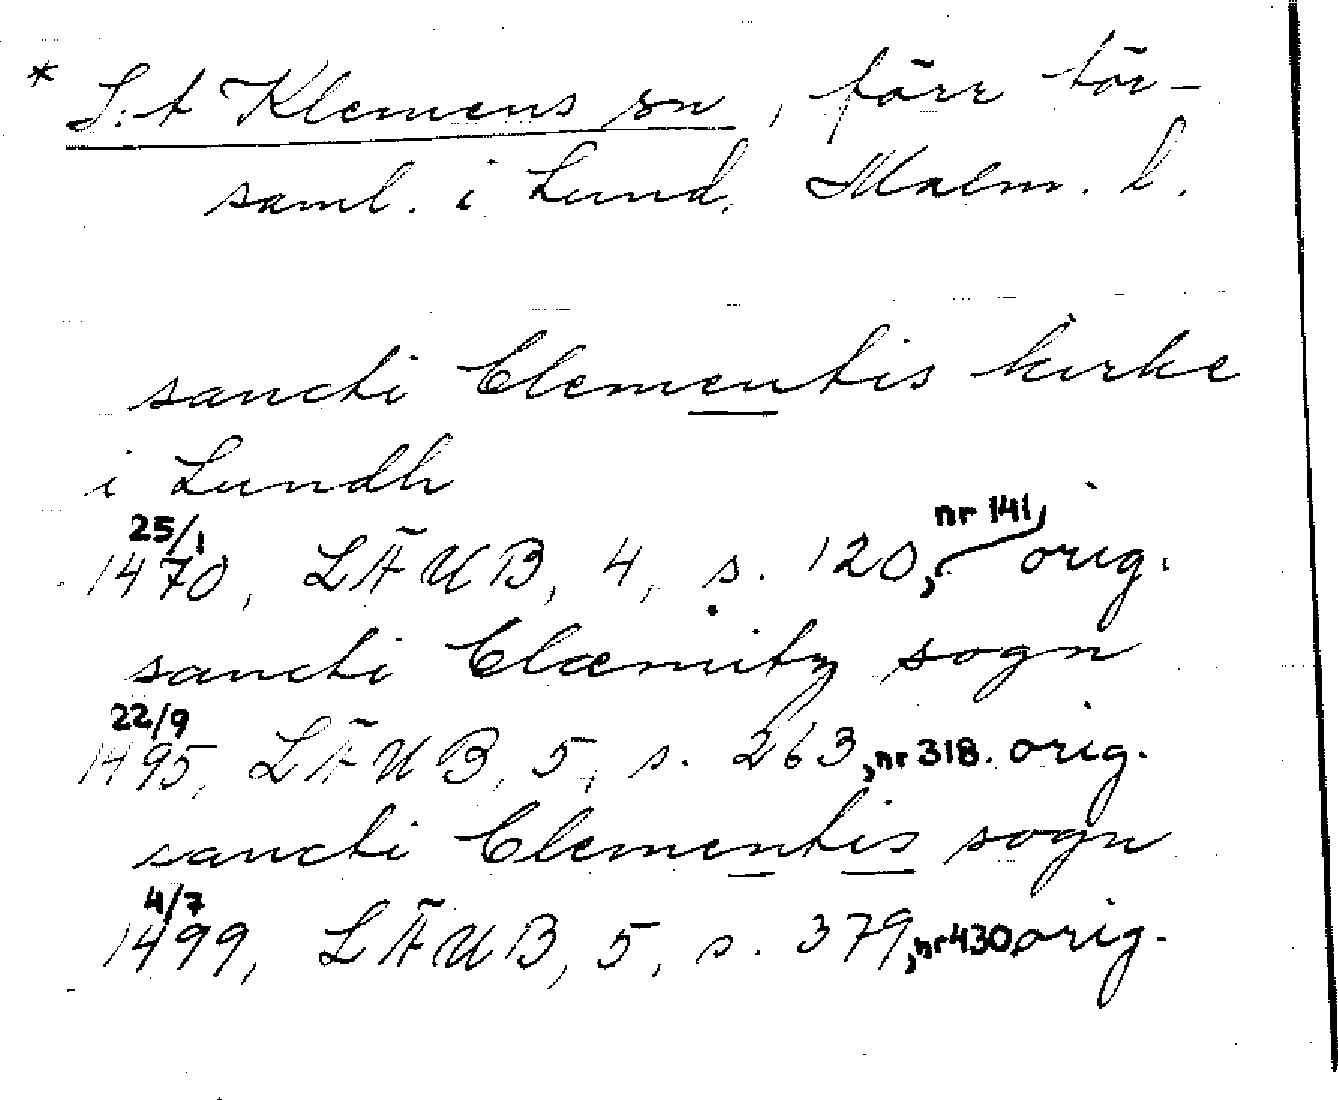 * S:t Klemens sn, förr för-
saml. i Lund, Malm. l.
sancti Clementis kirke
i Lundh
25/1 1470, LÄUB, 4, s. 120, nr 141, orig.
sancti Clæmitz sogn
22/9 1495, LÄUB, 5, s. 263, nr 318. orig.
sancti Clementis sogn
4/7 1499, LÄUB, 5, s. 379, nr 430, orig.